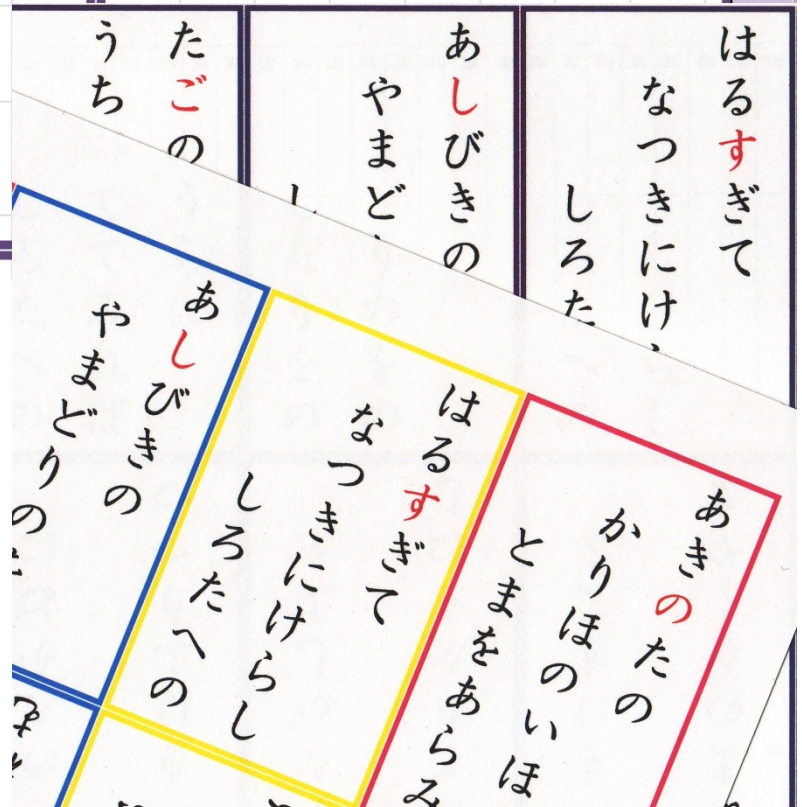 はるすぎて
なつきにけ
しろた
あしびきの
やまど
たごの
うち
あきのたの
かりほのいほ
とまをあらみ
はるすぎて
なつきにけらし
しろたへの
あしびきの
やまどりの